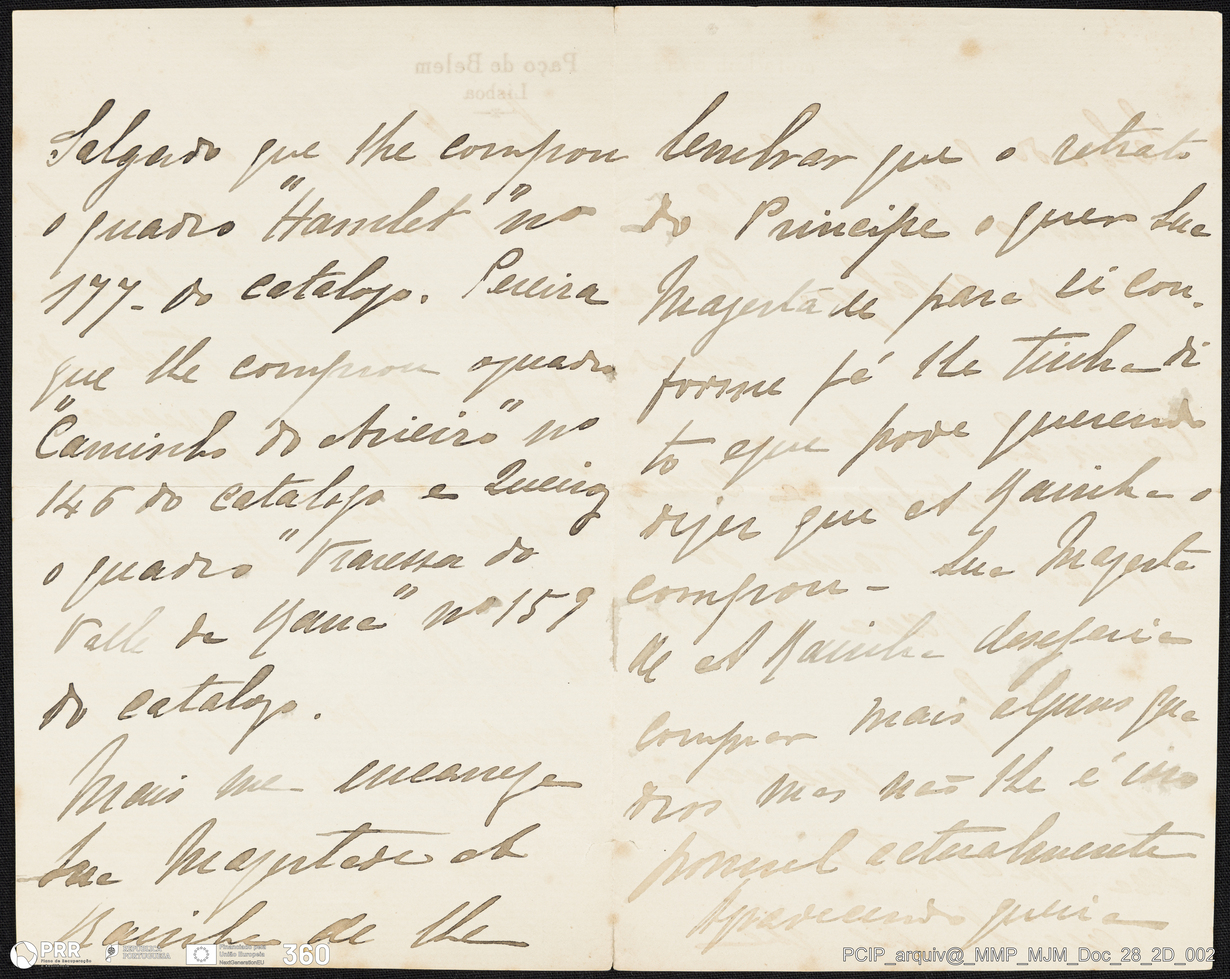 Paço de Belem
Lisboa
Salgado que lhe comprou
o quadro "Hamlet" nº
177- do catalogo. Pereira
que lhe comprou o quadro
"Caminho do Arieiro" nº
146 do catalogo e Queiroz
o quadro "Travessa do
Valle de" nº 159
do catalogo.
Mais me encarrega
Sua Magestade A
Rainha de lhe
lembrar que o retrato
do Principe o quer Sua
Magestade para si con-
forme já lhe tinha di
to e que pode querendo
dizer que A Rainha o
comprou - Sua Magesta
de A Rainha desejaria
comprar mais alguns qua
dros mas não lhe é im
possivel actualmente
Agradecendo queira
PRR
Plano de Recuperação
REPÚBLICA
PORTUGUESA
Financiado pela
União Europeia
NextGenerationEU
360
PCIP_arquiv@_MMP_MJM_Doc_28_2D_002